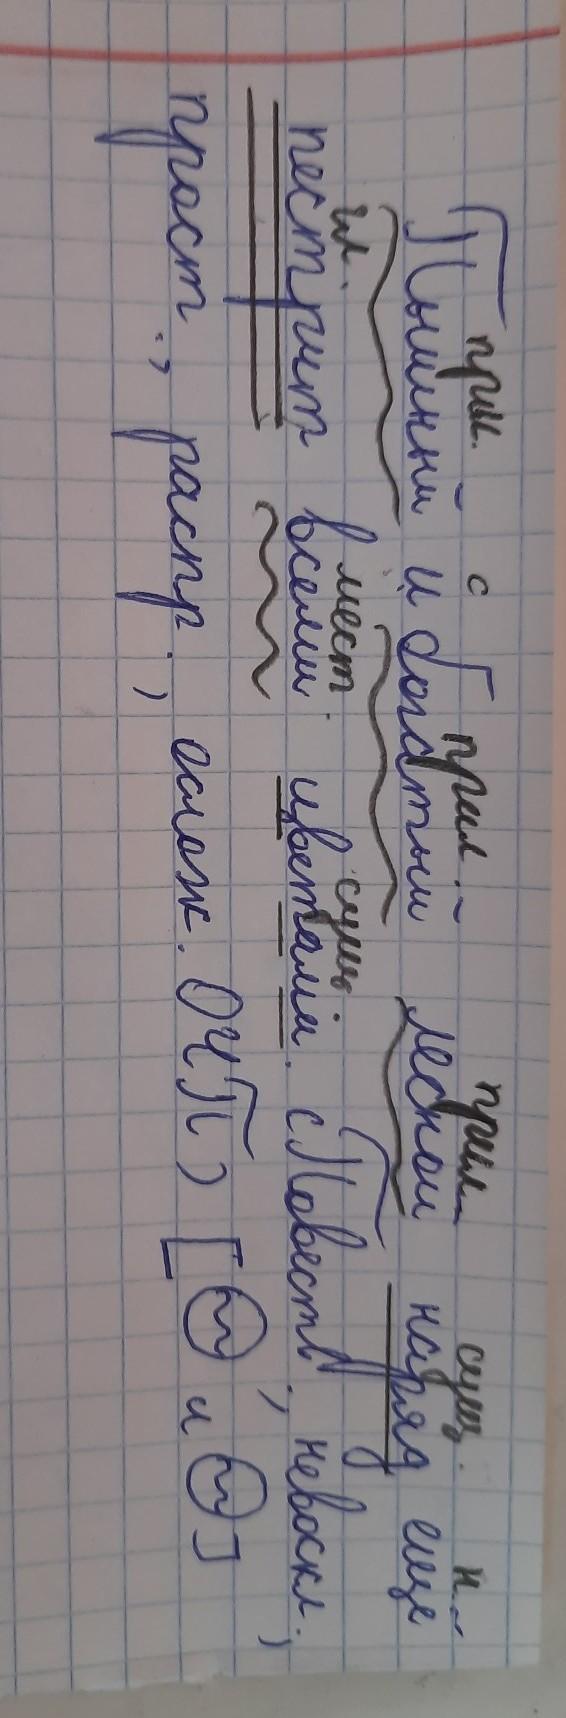 прил. с прил. прил. сущ. н.
Пышный и богатый лесной наряд еще
гл. мест. сущ.
пестрит всеми цветами. (Повеств., невоскл.,
прост., распр., ослож. ОЧП) [ и ]